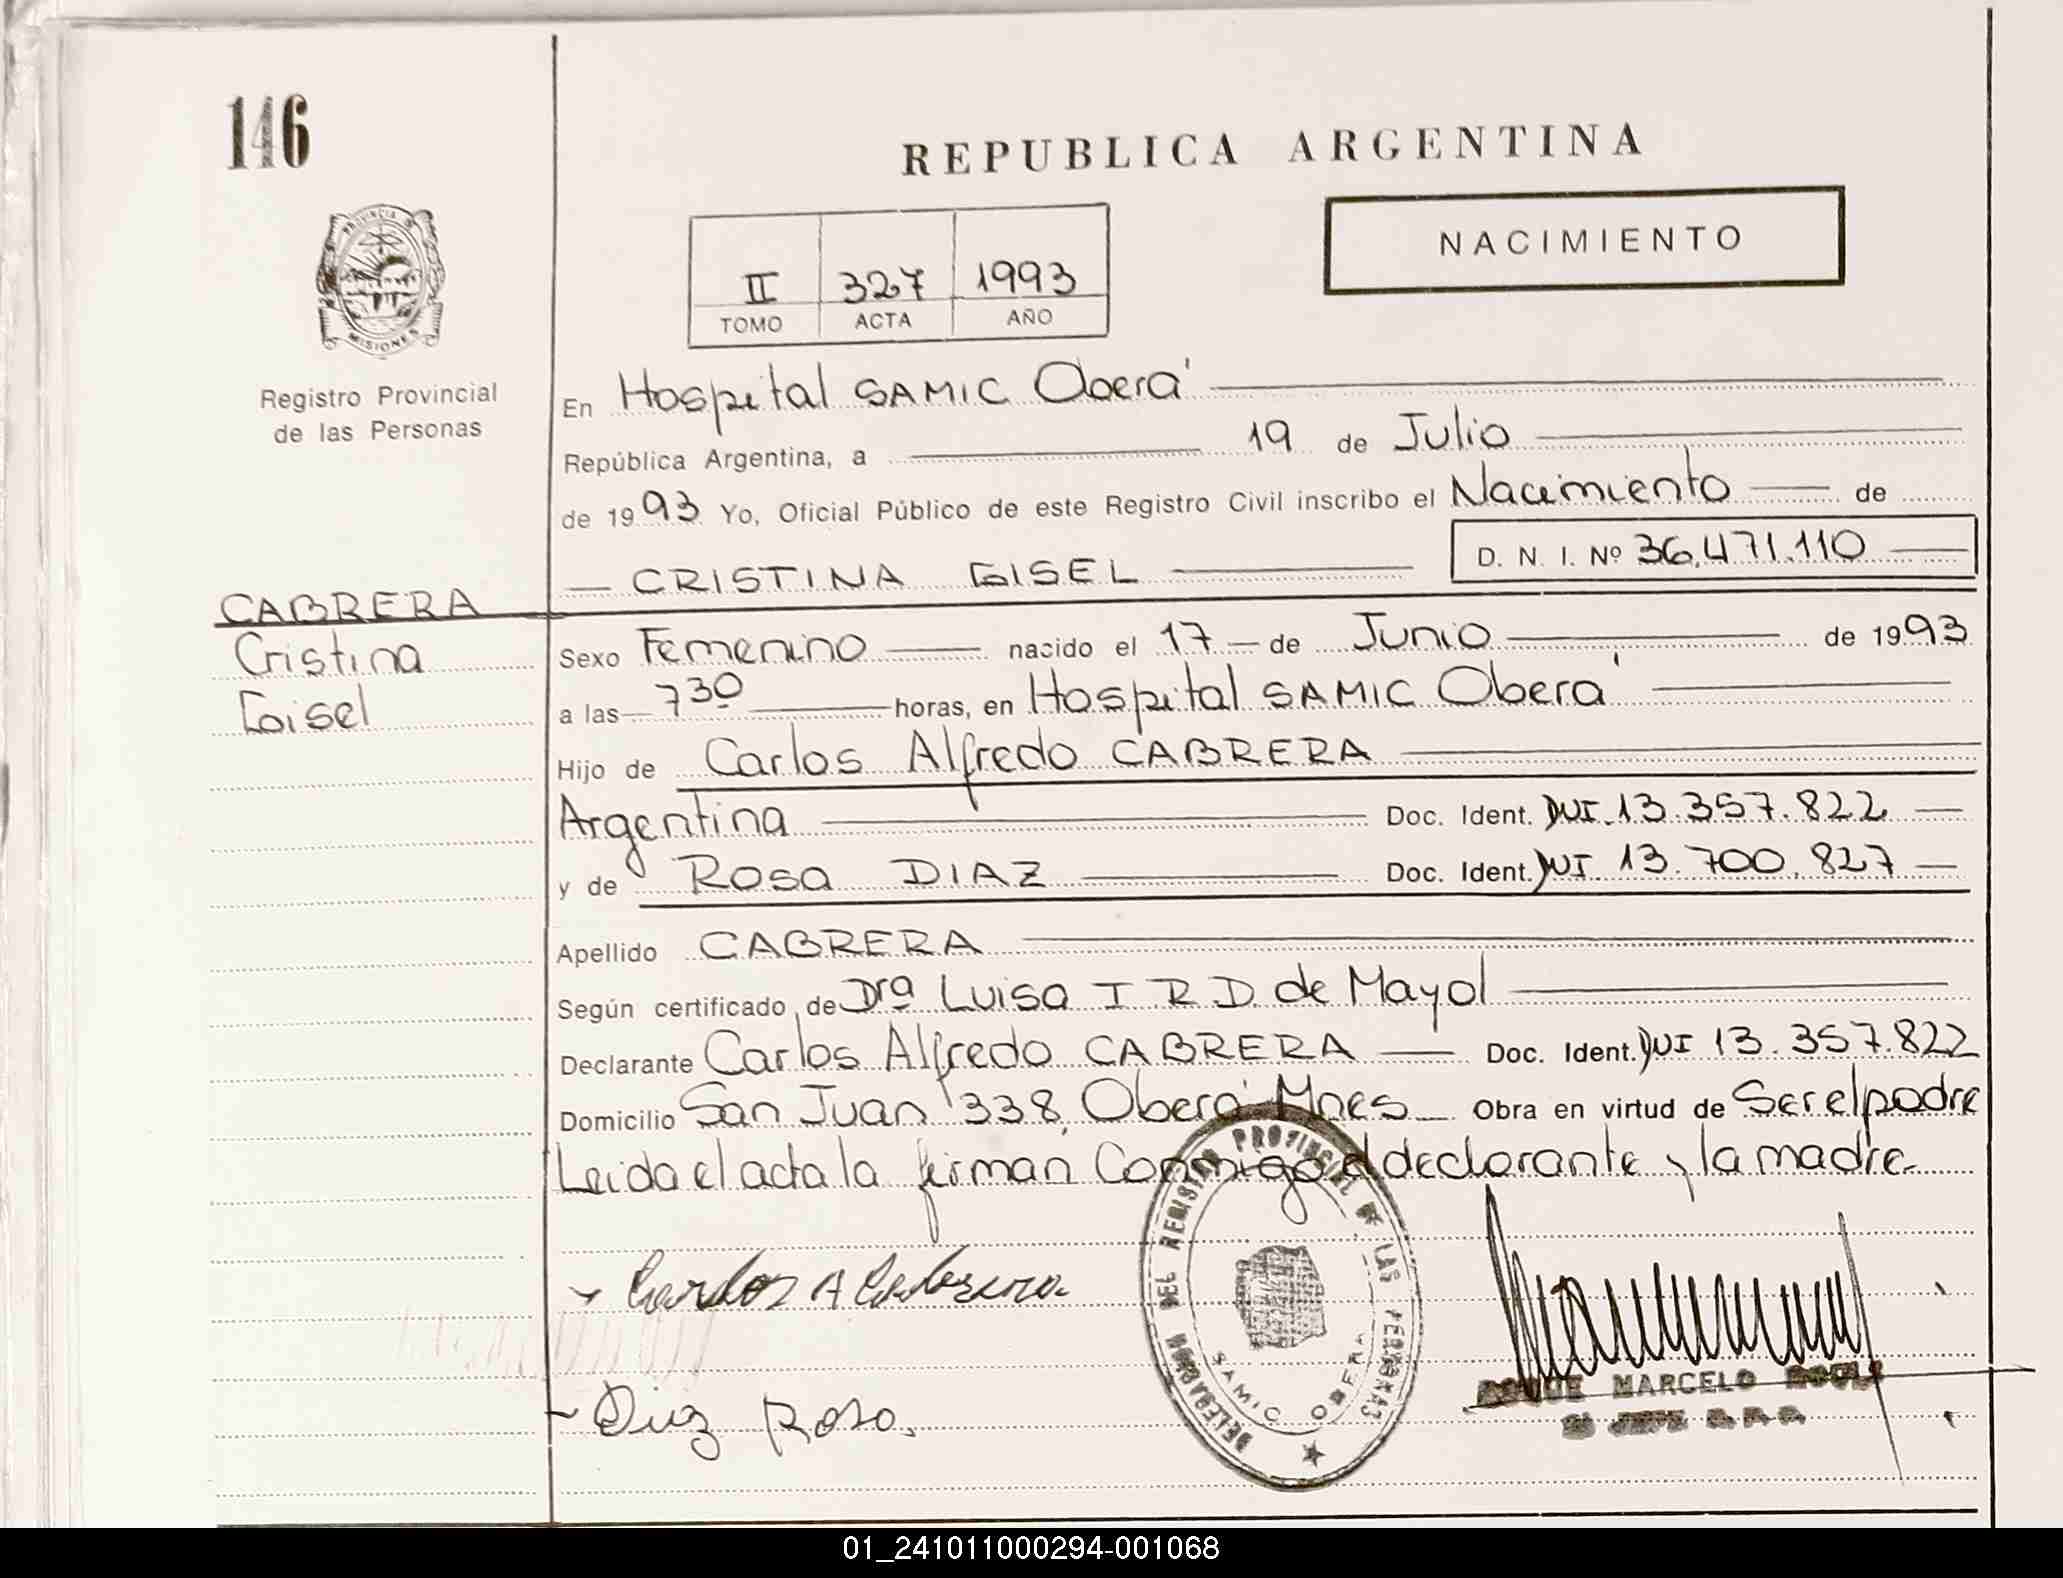 146
REPUBLICA ARGENTINA
PROVINCIA DE MISIONES
Registro Provincial
de las Personas
II 327 1993
TOMO ACTA AÑO
NACIMIENTO
En Hospital SAMIC Oberá
República Argentina, a 19 de Julio
de 1993 Yo, Oficial Público de este Registro Civil inscribo el Nacimiento de
CRISTINA GISEL D. N. I. Nº 36.471.110
CABRERA
Cristina
Gisel
Sexo Femenino nacido el 17 de Junio de 1993
a las 7 30 horas, en Hospital SAMIC Oberá
Hijo de Carlos Alfredo CABRERA
Argentina Doc. Ident. DNI 13.357.822
y de Rosa DIAZ Doc. Ident. DNI 13.700.827
Apellido CABRERA
Según certificado de Dra Luisa I R D de Mayol
Declarante Carlos Alfredo CABRERA Doc. Ident. DNI 13.357.822
Domicilio San Juan 338, Oberá Mnes Obra en virtud de Ser el padre
Leida el acta la firman Conmigo el declarante y la madre
Carlos A Cabrera
Diaz Rosa
DELEGACION DEL REGISTRO PROVINCIAL DE LAS PERSONAS
SAMIC OBERA
ROQUE MARCELO
01_241011000294-001068